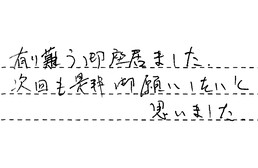 有り難う御座居ました
次回も是非御願いしたいと
思いました